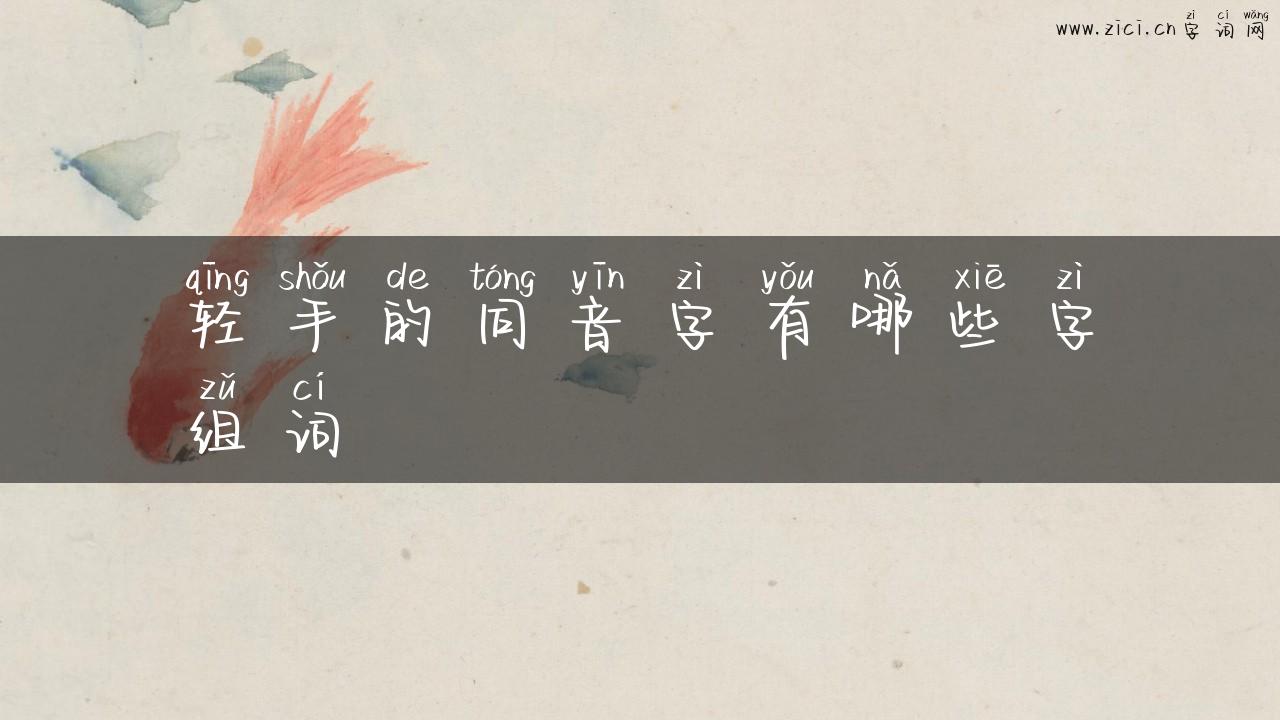 zì cí wǎng
www.zici.cn 字 词 网
qīng shǒu de tóng yīn zì yǒu nǎ xiē zì
轻 手 的 同 音 字 有 哪 些 字
zǔ cí
组 词